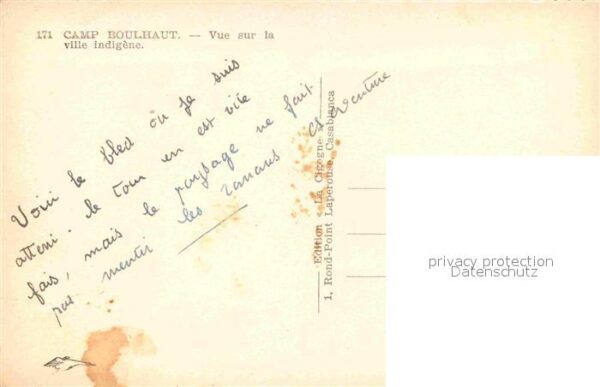 171 CAMP BOULHAUT. — Vue sur la
ville indigène.
Voici le bled où je suis
atteni. le tour en est vite
fais, mais le paysage ne fait
pas mentir les romans d'aventure
Edition « La Cigogne »
1, Rond-Point Laperouse, Casablanca
privacy protection
Datenschutz